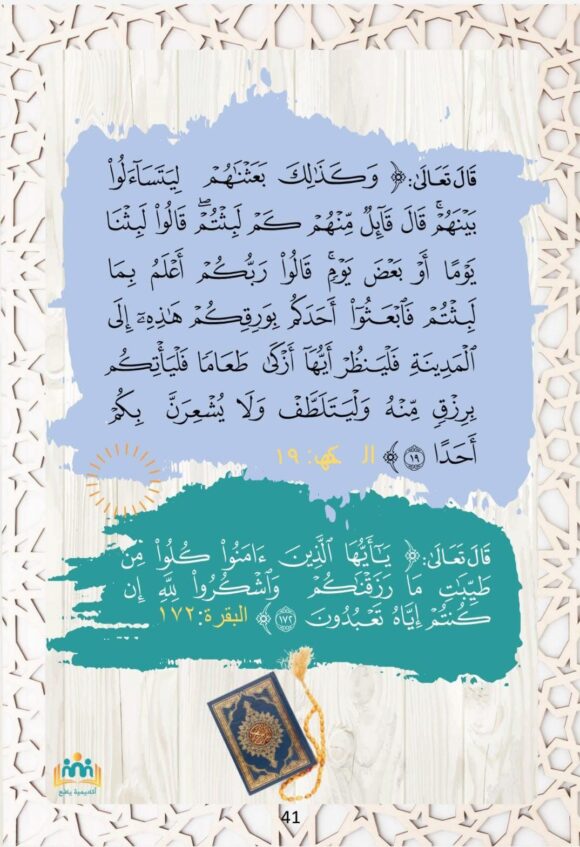 قَالَ تَعَالَىٰ: ﴿ وَكَذَٰلِكَ بَعَثْنَٰهُمْ لِيَتَسَآءَلُوا۟
بَيْنَهُمْ ۚ قَالَ قَآئِلٌ مِّنْهُمْ كَمْ لَبِثْتُمْ ۖ قَالُوا۟ لَبِثْنَا
يَوْمًا أَوْ بَعْضَ يَوْمٍ ۚ قَالُوا۟ رَبُّكُمْ أَعْلَمُ بِمَا
لَبِثْتُمْ فَٱبْعَثُوٓا۟ أَحَدَكُم بِوَرِقِكُمْ هَٰذِهِۦٓ إِلَى
ٱلْمَدِينَةِ فَلْيَنظُرْ أَيُّهَآ أَزْكَىٰ طَعَامًا فَلْيَأْتِكُم
بِرِزْقٍ مِّنْهُ وَلْيَتَلَطَّفْ وَلَا يُشْعِرَنَّ بِكُمْ
أَحَدًا ١٩ ﴾ الكهف: ١٩
قَالَ تَعَالَىٰ: ﴿ يَٰٓأَيُّهَا ٱلَّذِينَ ءَامَنُوا۟ كُلُوا۟ مِن
طَيِّبَٰتِ مَا رَزَقْنَٰكُمْ وَٱشْكُرُوا۟ لِلَّهِ إِن
كُنتُمْ إِيَّاهُ تَعْبُدُونَ ١٧٢ ﴾ البقرة: ١٧٢
أكاديمية يافع
41